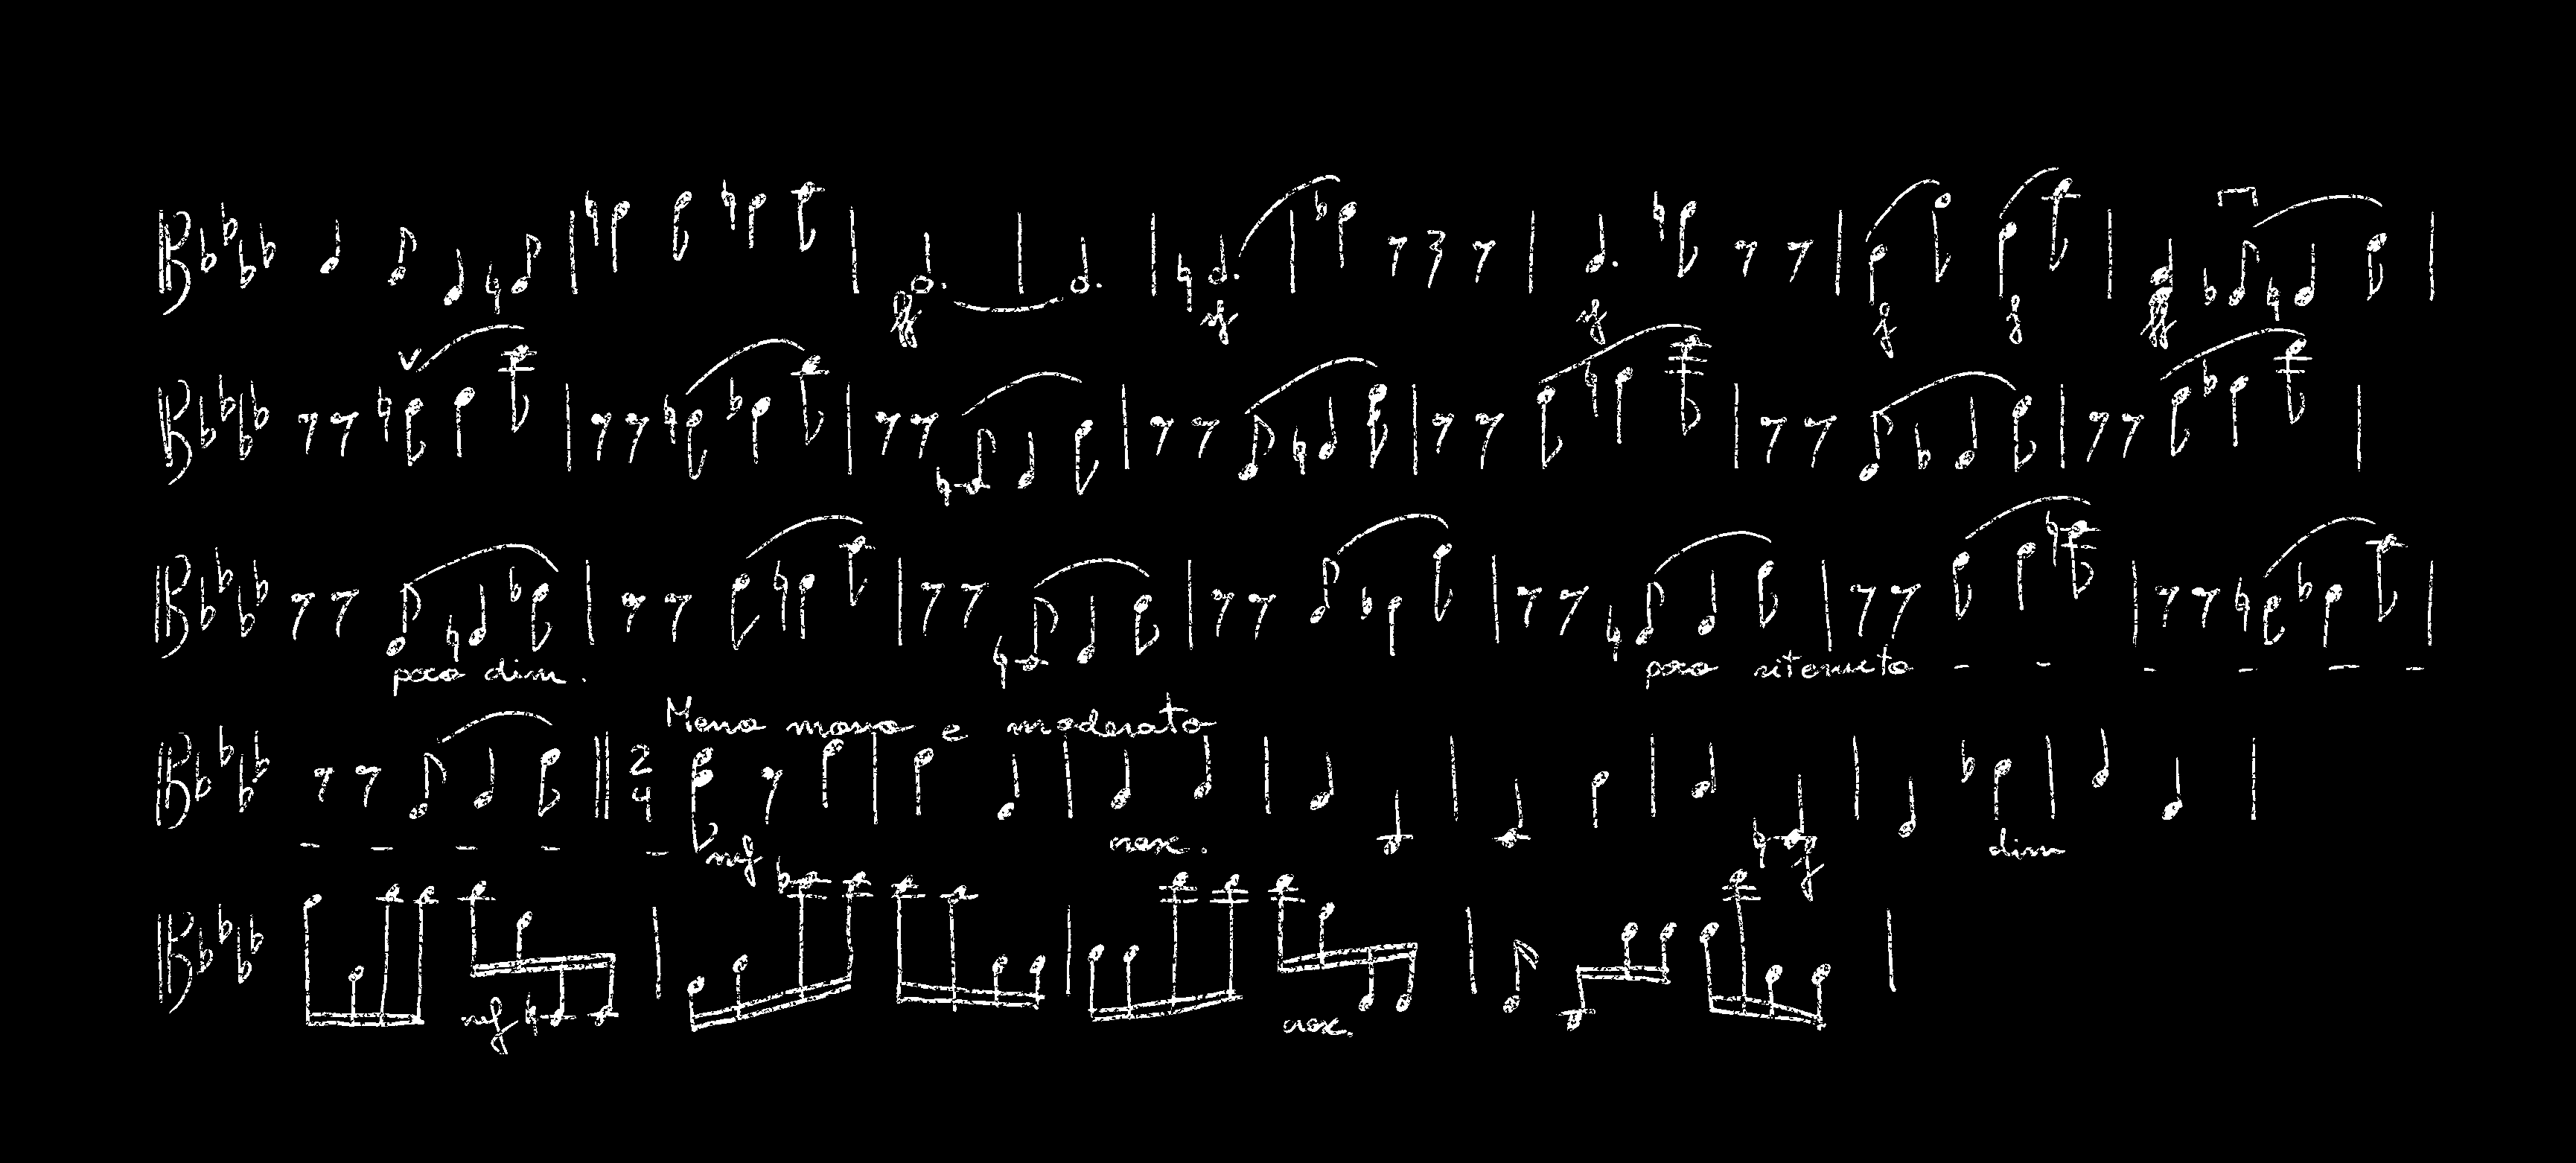 ff sf sf f f ff
V
poco dim.
poco ritenuto - - - - - -
Meno mosso e moderato
2
4
- - - - - mf cresc. f dim
mf cresc.